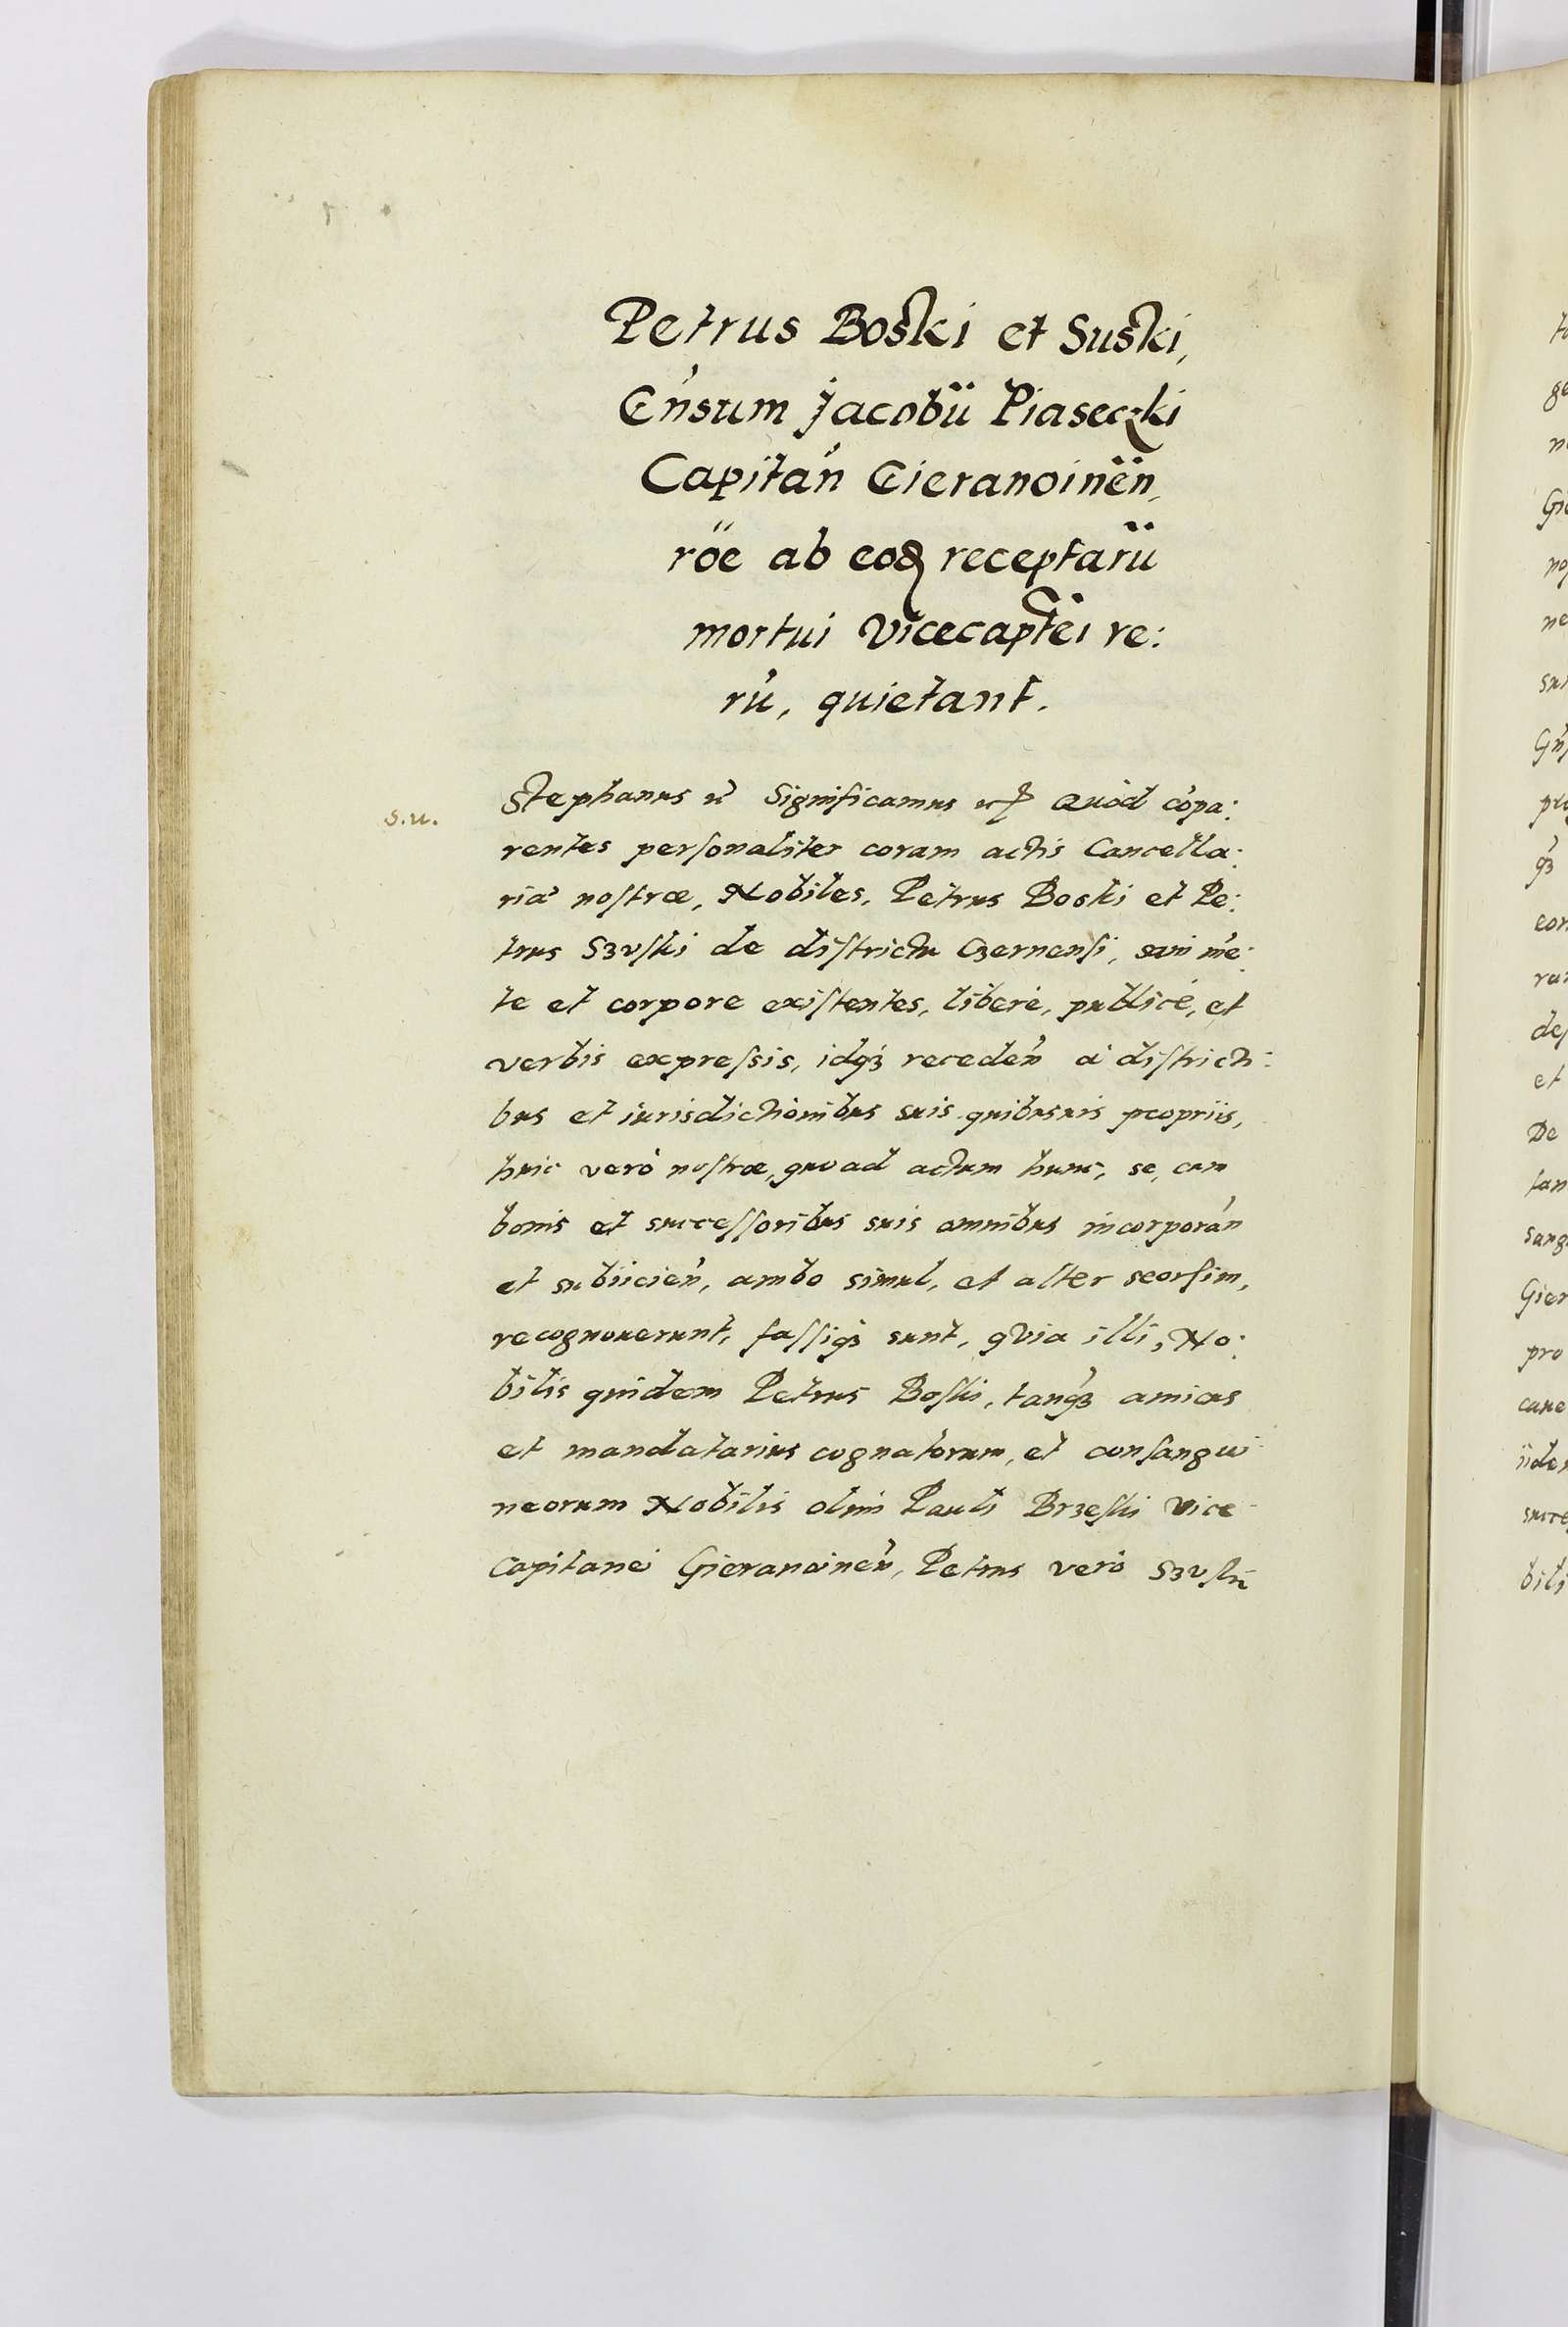 Petrus Boski et Suski,
Gn̄sum Jacobū Piaseczki
Capitan̄ Gieranoinen̄,
rōe ab eoꝗ receptarū
mortui Vicecaptēi re:
rū, quietant.
s.u.
Stephanus ꝛc̄ Significamus ꝛc̄ Quòd cōpa:
rentes perſonaliter coram actis Cancella:
riæ noſtræ, Nobiles, Petrus Boski et Pe:
trus Szuſki de diſtrictu Czernenſi, sani mē:
te et corpore exiſtentes, liberè, publicè, et
verbis expreſsis, idqꝫ receden̄ à diſtricti:
bus et iurisdictionibus suis quibusuis propriis,
huic verò noſtræ, quoad actum hunc, se, cum
bonis et succeſſoribus suis omnibus incorporan̄
et subiicien̄, ambo simul, et alter seorſim,
recognouerunt, faſſiqꝫ sunt, quia illi, No:
bilis quidem Petrus Boſki, tanqꝫ amicus
et mandatarius cognatorum, et conſangui
neorum Nobilis olim Pauli Brzeſki Vice
Capitanei Gieranoinen̄, Petrus verò Szuſki